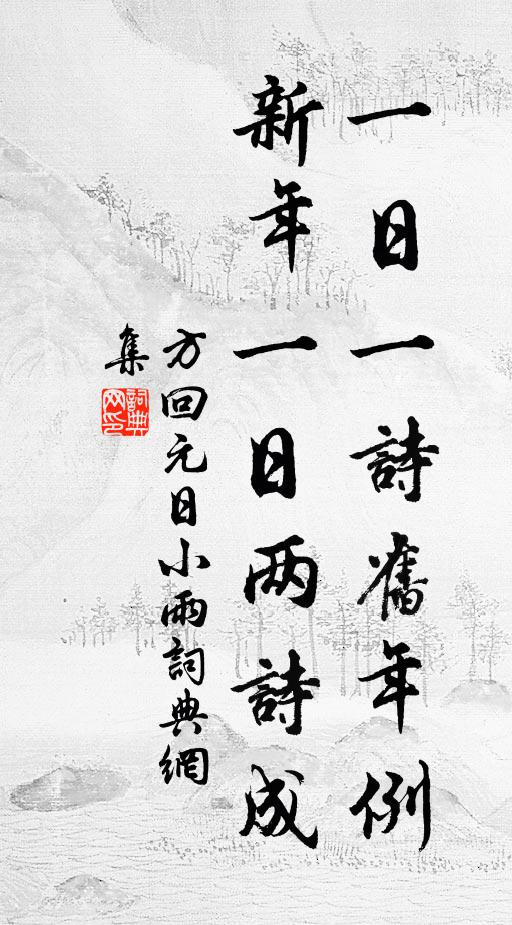 一日一詩舊年例
新年一日两詩成
方回元日小雨詞典網
集
詞典网印